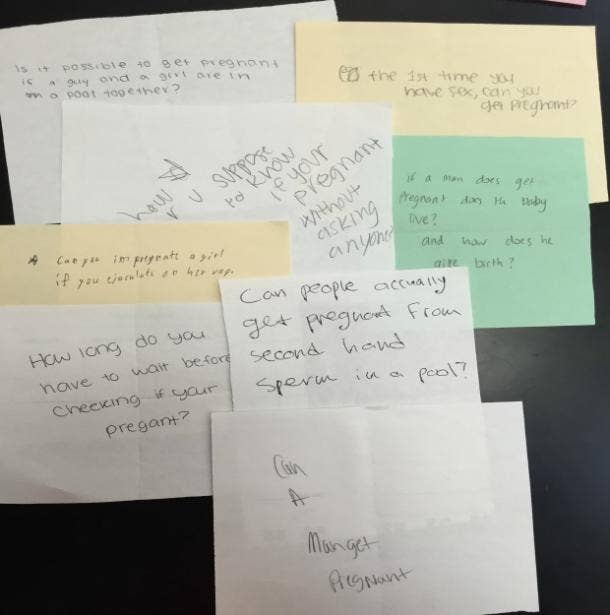 Is it possible to get pregnant
if a guy and a girl are in
a pool together?
the 1st time you
have sex, can you
get pregnant?
how
r u suppose
to know
if your
pregnant
without
asking
anyone
if a man does get
pregnant does the baby
live?
and how does he
give birth?
Can you impregnate a girl
if you ejaculate on her
Can people accually
get pregnant from
second hand
sperm in a pool?
How long do you
have to wait before
checking if your
pregant?
Can
A
Man get
Pregnant